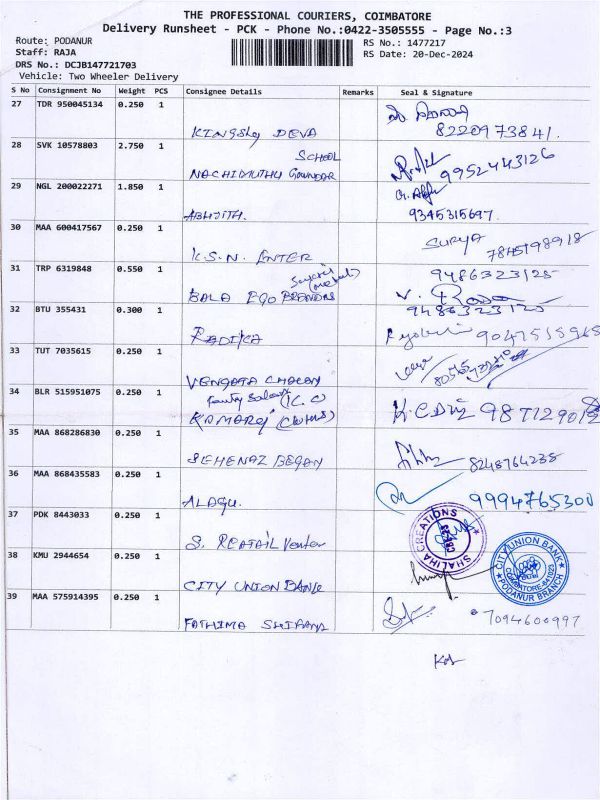 THE PROFESSIONAL COURIERS, COIMBATORE
Delivery Runsheet - PCK - Phone No.:0422-3505555 - Page No.:3
Route: PODANUR
RS No.: 1477217
Staff: RAJA
RS Date: 20-Dec-2024
DRS No.: DCJB147721703
Vehicle: Two Wheeler Delivery
S No Consignment No Weight PCS Consignee Details Remarks Seal & Signature
27 TDR 950045134 0.250 1
KINGSLY DEVA
8220973841.
28 SVK 10578803 2.750 1
SCHOOL
NACHIMUTHU GOUNDAR
9952443126
29 NGL 200022271 1.850 1
ABHJITH.
9345315697.
30 MAA 600417567 0.250 1
K.S.N. ENTER
SURYA 7845198918
31 TRP 6319848 0.550 1
BALA EGO
9486323125
32 BTU 355431 0.300 1
RADIKA
9486323125
33 TUT 7035615 0.250 1
VENGATA
34 BLR 515951075 0.250 1
KAMARAJ
35 MAA 868286830 0.250 1
SEHENAZ BEGAM
8248764238
36 MAA 868435583 0.250 1
ALAGU.
9994765300
37 PDK 8443033 0.250 1
S. REATAIL Venter
SHALIHA CREATIONS
38 KMU 2944654 0.250 1
CITY UNION BANK
CITY UNION BANK
COIMBATORE-641023
PODANUR BRANCH
39 MAA 575914395 0.250 1
FATHIMA SHIRANE
7094600997